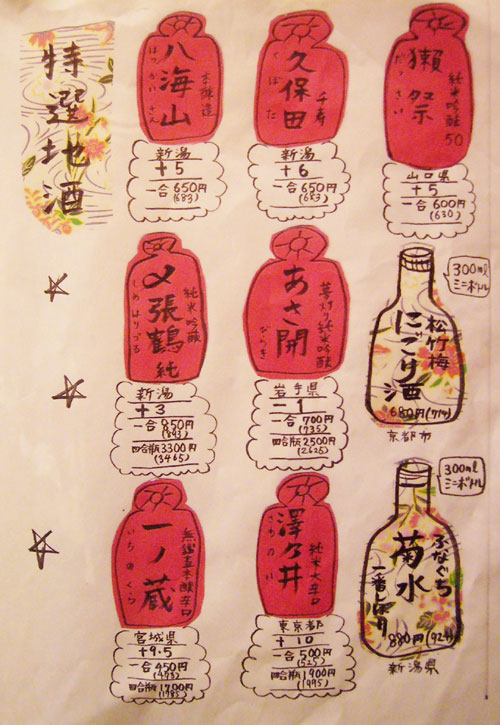 特選地酒
八海山
はっかいさん
本醸造
新潟
+5
一合 650円
(683)
久保田
くぼた
千寿
新潟
+6
一合 650円
(683)
獺祭
だっさい
純米吟醸50
山口県
+5
一合 600円
(630)
〆張鶴 純
しめはりづる
純米吟醸
新潟
+3
一合 850円
(893)
四合瓶3300円
(3465)
あさ開
びらき
夢灯り純米吟醸
岩手県
-1
一合 700円
(735)
四合瓶2500円
(2625)
300ml
ミニボトル
松竹梅
にごり酒
680円(714)
京都市
一ノ蔵
いちのくら
無鑑査本醸辛口
宮城県
+9.5
一合 450円
(473)
四合瓶1700円
(1785)
澤乃井
さわのい
純米大辛口
東京都
+10
一合 500円
(525)
四合瓶1900円
(1995)
300ml
ミニボトル
ふなぐち
菊水
一番しぼり
880円(924)
新潟県